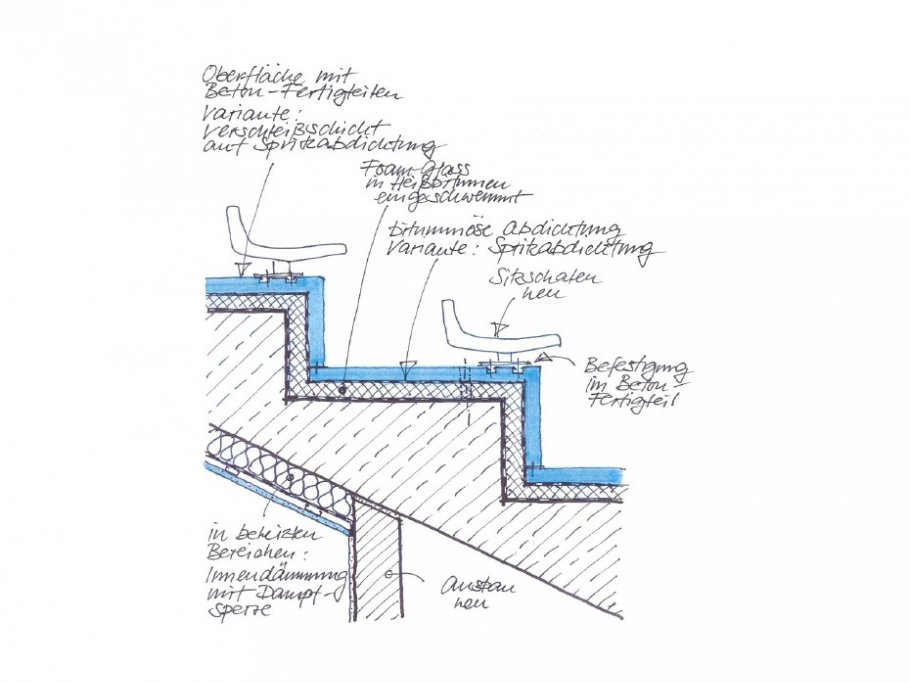 Oberfläche mit
Beton-Fertigteilen
Variante:
Verschleißschicht
auf Spritzabdichtung
Foam-Glass
in Heißbitumen
eingeschwemmt
bituminöse Abdichtung
Variante: Spritzabdichtung
Sitzschalen
neu
Befestigung
im Beton-
Fertigteil
in beheizten
Bereichen:
Innendämmung
mit Dampf-
sperre
Ausbau
neu